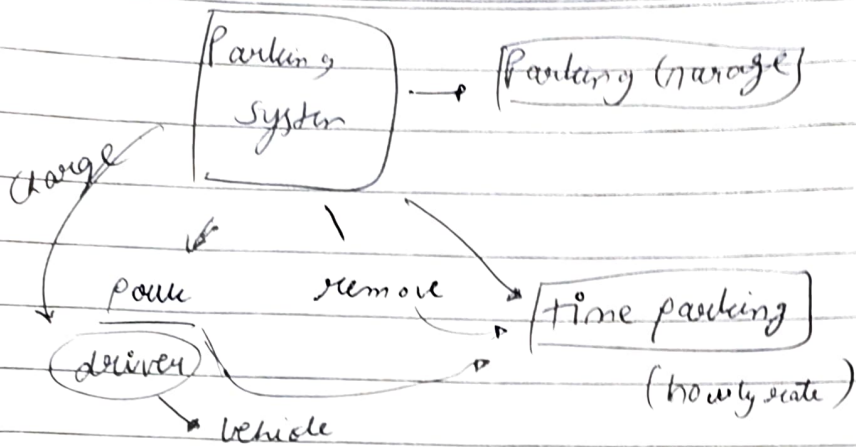 Parking
system
Parking (Garage)
charge
park
remove
time parking
(hourly rate)
driver
vehicle